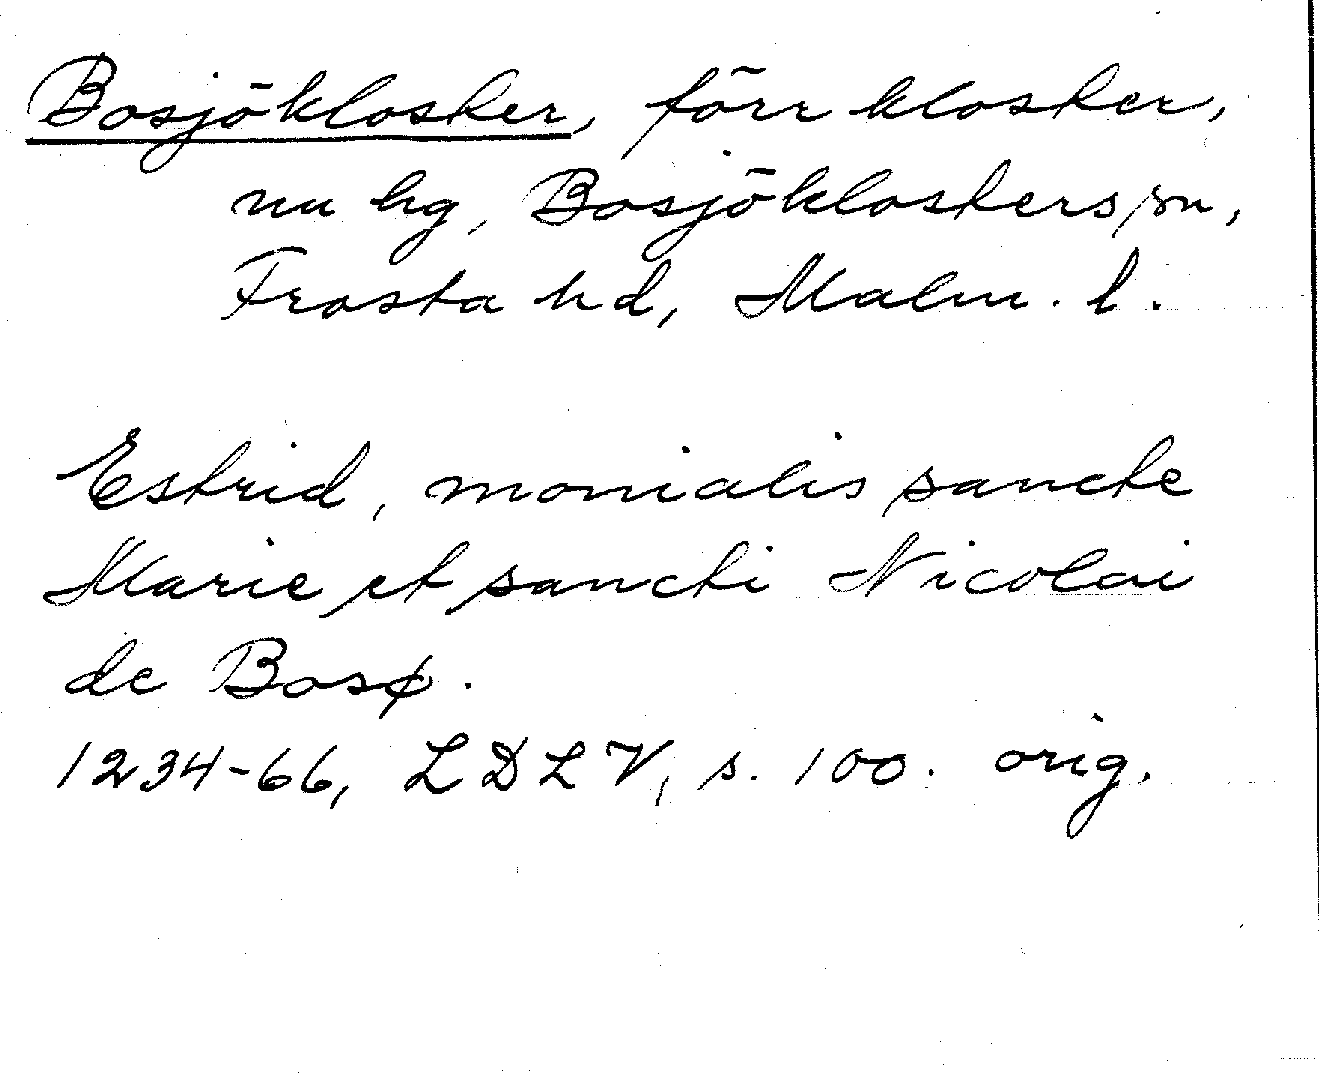 Bosjökloster, förr kloster,
nu hg, Bosjöklosters sn,
Frosta hd, Malm. l.
Estrid, monialis sancte
Marie et sancti Nicolai
de Bosø.
1234-66, LDLV, s. 100. orig.